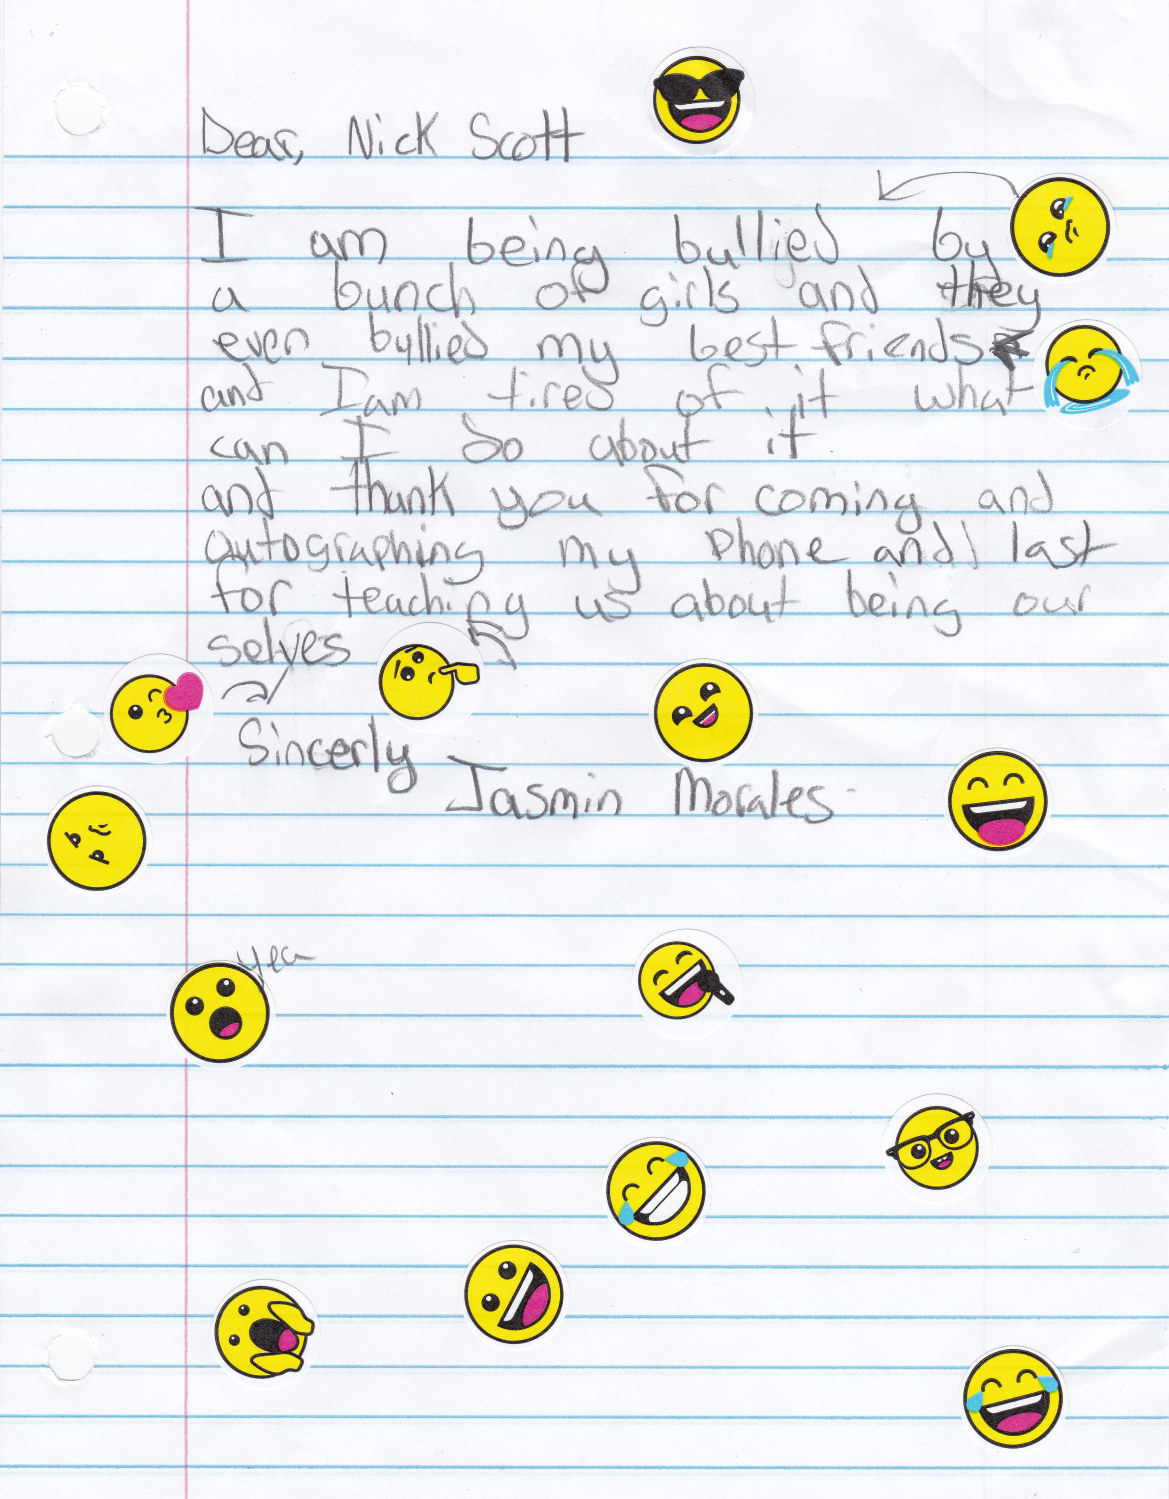 Dear, Nick Scott
I am being bullied by
a bunch of girls and they
even bullied my best friends
and I am tired of it what
can I do about it
and thank you for coming and
autographing my phone and last
for teaching us about being our
selves
Sincerly
Jasmin Morales
yea